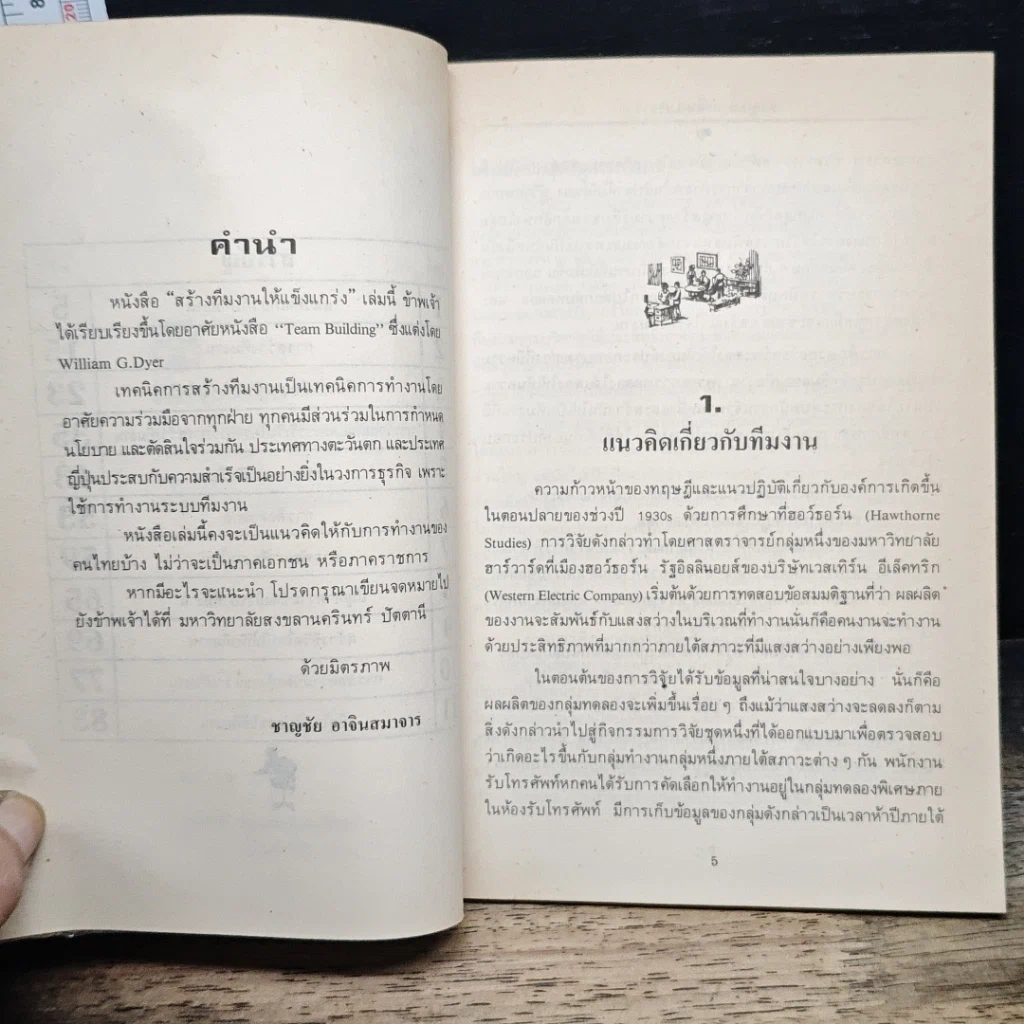 คำนำ
หนังสือ “สร้างทีมงานให้แข็งแกร่ง” เล่มนี้ ข้าพเจ้า
ได้เรียบเรียงขึ้นโดยอาศัยหนังสือ “Team Building” ซึ่งแต่งโดย
William G.Dyer
เทคนิคการสร้างทีมงานเป็นเทคนิคการทำงานโดย
อาศัยความร่วมมือจากทุกฝ่าย ทุกคนมีส่วนร่วมในการกำหนด
นโยบาย และตัดสินใจร่วมกัน ประเทศทางตะวันตก และประเทศ
ญี่ปุ่นประสบกับความสำเร็จเป็นอย่างยิ่งในวงการธุรกิจ เพราะ
ใช้การทำงานระบบทีมงาน
หนังสือเล่มนี้คงจะเป็นแนวคิดให้กับการทำงานของ
คนไทยบ้าง ไม่ว่าจะเป็นภาคเอกชน หรือภาคราชการ
หากมีอะไรจะแนะนำ โปรดกรุณาเขียนจดหมายไป
ยังข้าพเจ้าได้ที่ มหาวิทยาลัยสงขลานครินทร์ ปัตตานี
ด้วยมิตรภาพ
ชาญชัย อาจินสมาจาร
1.
แนวคิดเกี่ยวกับทีมงาน
ความก้าวหน้าของทฤษฎีและแนวปฏิบัติเกี่ยวกับองค์การเกิดขึ้น
ในตอนปลายของช่วงปี 1930s ด้วยการศึกษาที่ฮอว์ธอร์น (Hawthorne
Studies) การวิจัยดังกล่าวทำโดยศาสตราจารย์กลุ่มหนึ่งของมหาวิทยาลัย
ฮาร์วาร์ดที่เมืองฮอว์ธอร์น รัฐอิลลินอยส์ของบริษัทเวสเทิร์น อีเล็คทริก
(Western Electric Company) เริ่มต้นด้วยการทดสอบข้อสมมติฐานที่ว่า ผลผลิต
ของงานจะสัมพันธ์กับแสงสว่างในบริเวณที่ทำงานนั่นก็คือคนงานจะทำงาน
ด้วยประสิทธิภาพที่มากกว่าภายใต้สภาวะที่มีแสงสว่างอย่างเพียงพอ
ในตอนต้นของการวิจัยได้รับข้อมูลที่น่าสนใจบางอย่าง นั่นก็คือ
ผลผลิตของกลุ่มทดลองจะเพิ่มขึ้นเรื่อย ๆ ถึงแม้ว่าแสงสว่างจะลดลงก็ตาม
สิ่งดังกล่าวนำไปสู่กิจกรรมการวิจัยชุดหนึ่งที่ได้ออกแบบมาเพื่อตรวจสอบ
ว่าเกิดอะไรขึ้นกับกลุ่มทำงานกลุ่มหนึ่งภายใต้สภาวะต่าง ๆ กัน พนักงาน
รับโทรศัพท์หกคนได้รับการคัดเลือกให้ทำงานอยู่ในกลุ่มทดลองพิเศษภาย
ในห้องรับโทรศัพท์ มีการเก็บข้อมูลของกลุ่มดังกล่าวเป็นเวลาห้าปีภายใต้
5